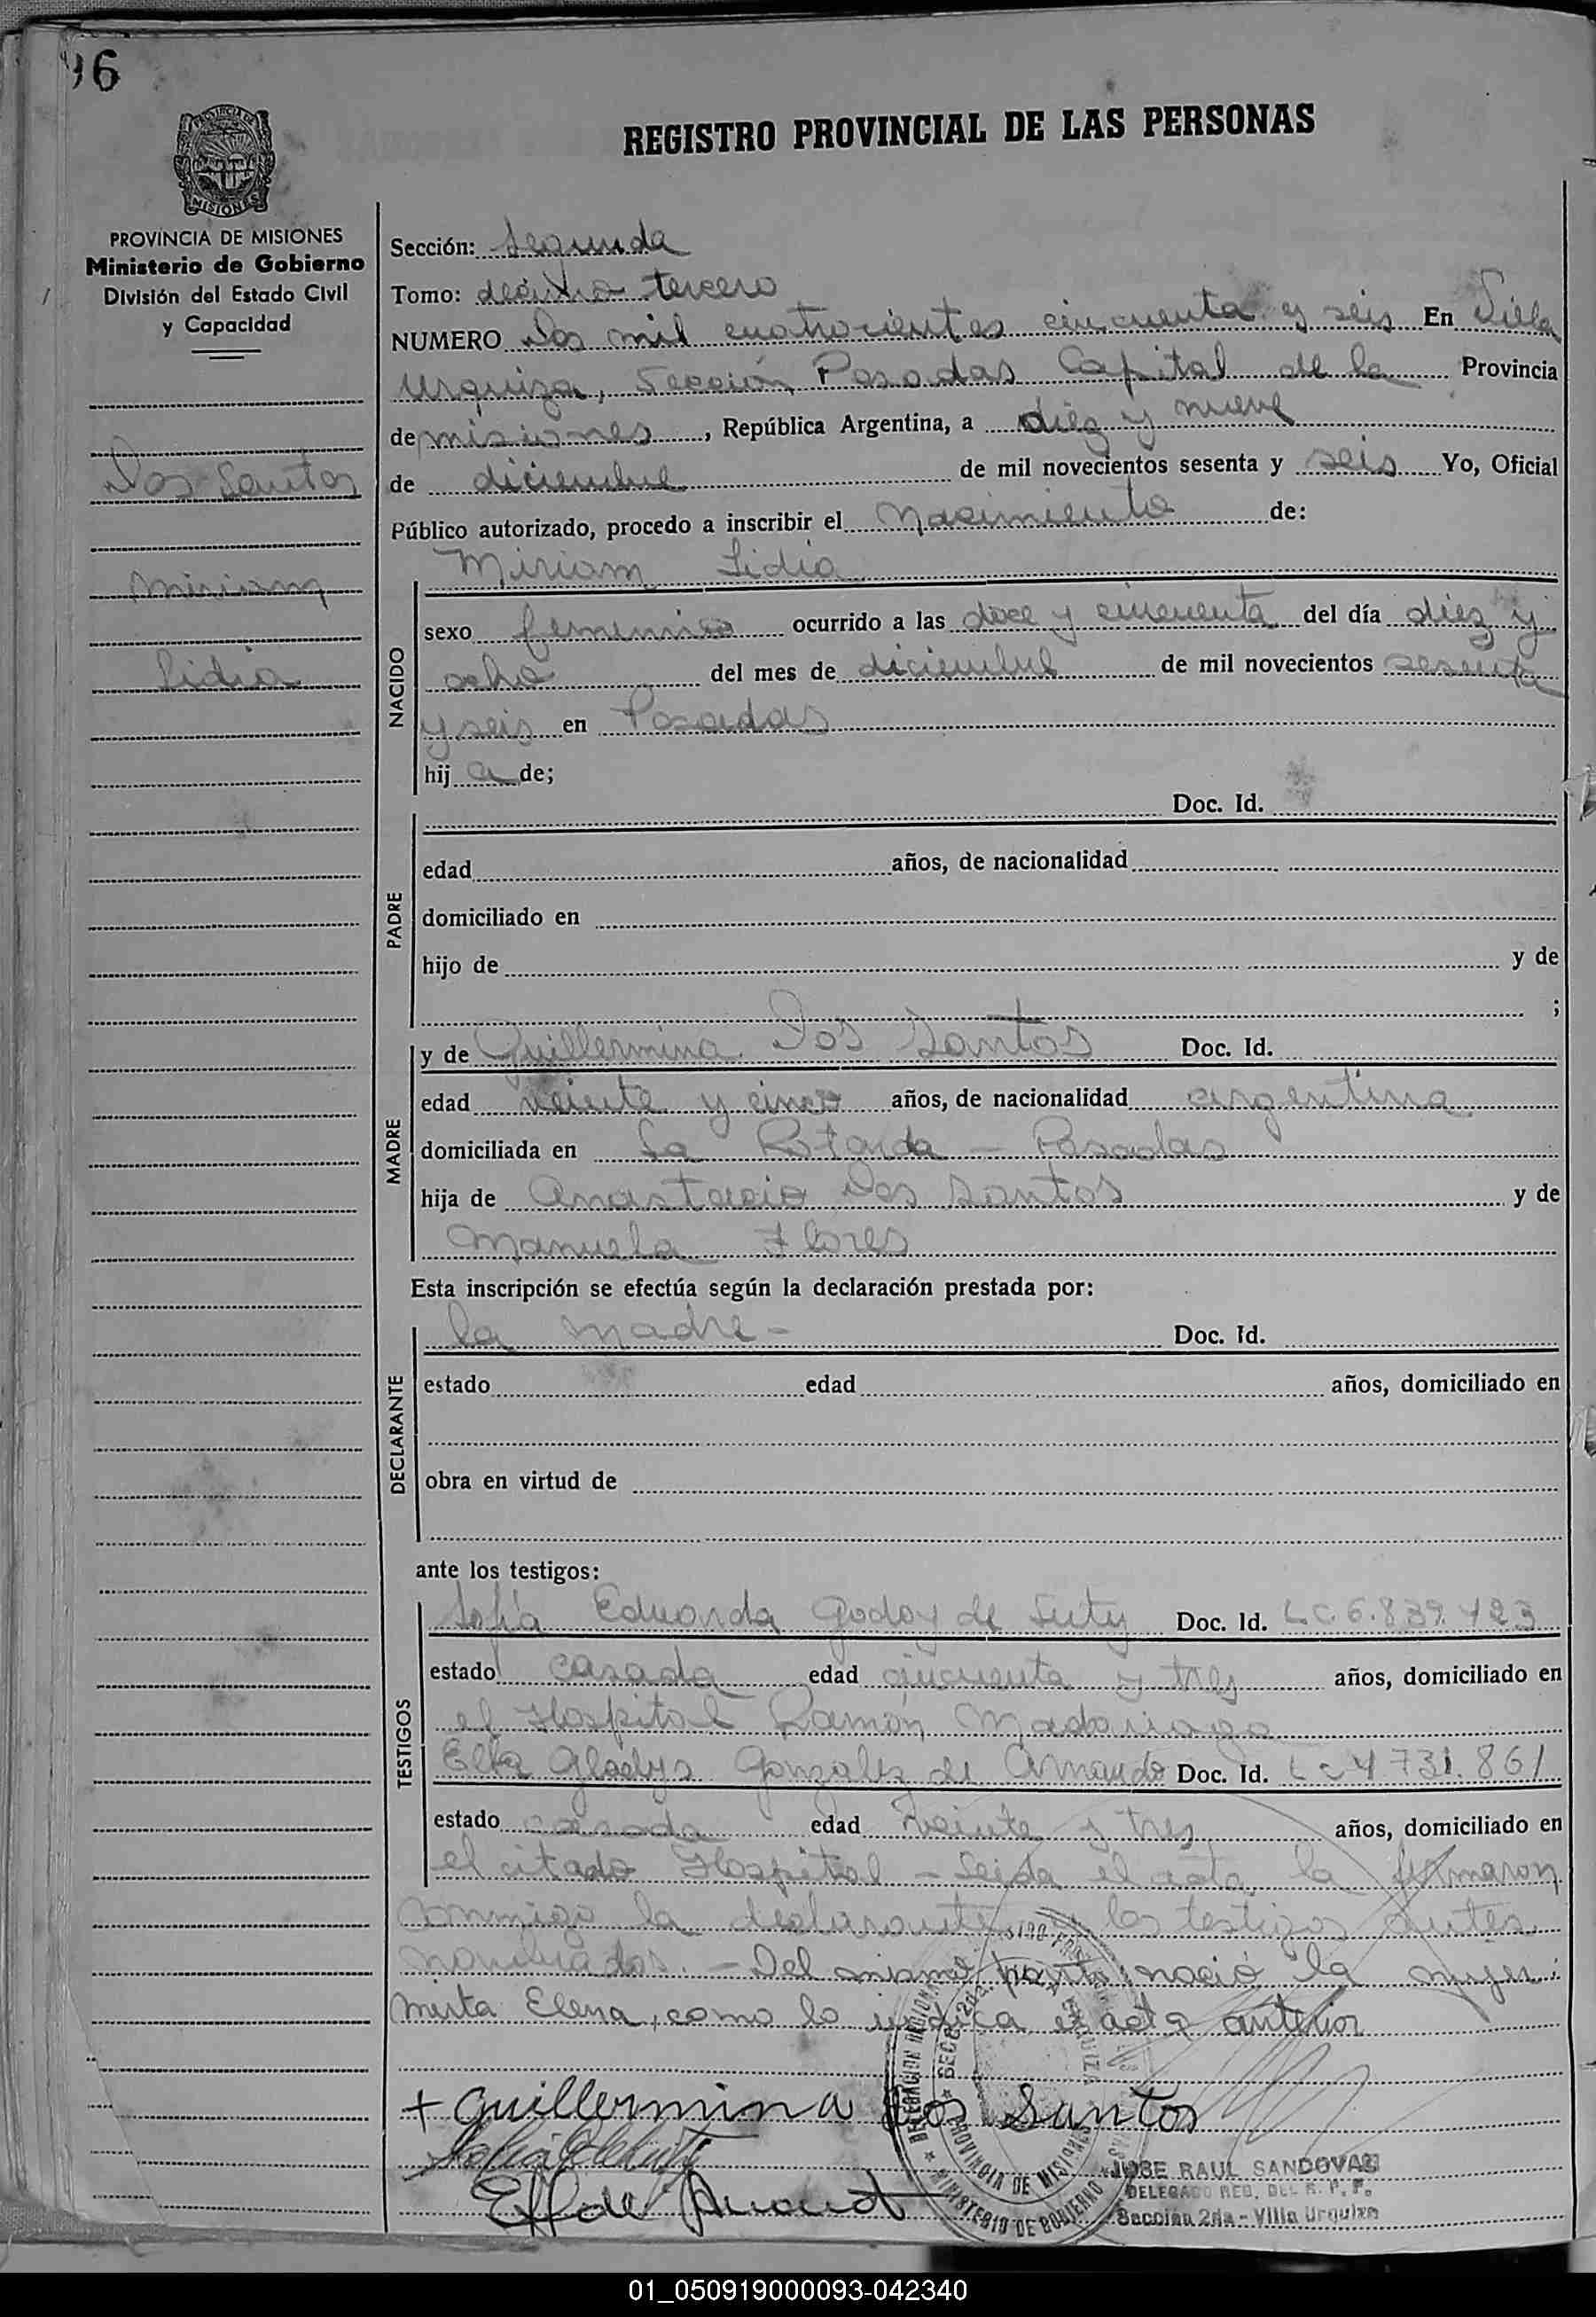 96
REGISTRO PROVINCIAL DE LAS PERSONAS
PROVINCIA DE MISIONES
MISIONES
Ministerio de Gobierno
División del Estado Civil
y Capacidad
Dos Santos
Miriam
Lidia
Sección: Segunda
Tomo: décimo tercero
NUMERO Dos mil cuatrocientos cincuenta y seis En Villa
Urquiza, Sección Posadas Capital de la Provincia
de misiones, República Argentina, a diez y nueve
de diciembre de mil novecientos sesenta y seis Yo, Oficial
Público autorizado, procedo a inscribir el Nacimiento de:
NACIDO
Miriam Lidia
sexo femenino ocurrido a las doce y cincuenta del día diez y
ocho del mes de diciembre de mil novecientos sesenta
y seis en Posadas
hij a de;
PADRE
Doc. Id.
edad años, de nacionalidad
domiciliado en
hijo de y de
;
MADRE
y de Guillermina Dos Santos Doc. Id.
edad veinte y cinco años, de nacionalidad argentina
domiciliada en La Rotonda - Posadas
hija de Anastacio Dos Santos y de
Manuela Flores
Esta inscripción se efectúa según la declaración prestada por:
DECLARANTE
la madre - Doc. Id.
estado edad años, domiciliado en
obra en virtud de
ante los testigos:
TESTIGOS
Sofía Eduarda Godoy de Doc. Id. L.C. 6.839.423
estado casada edad cincuenta y tres años, domiciliado en
el Hospital Ramón Madariaga
Elfa Gladys Gonzalez de Doc. Id. L C 4 731.861
estado casada edad veinte y tres años, domiciliado en
el citado Hospital - Leida el acta la firmaron
conmigo la declarante y los testigos antes
nombrados. - Del mismo parto nació la mujer:
Mirta Elena, como lo indica el acta anterior
+ Guillermina Dos Santos
DELEGACION REGIONAL
SECC. 2da. VILLA URQUIZA
PROVINCIA DE MISIONES
MINISTERIO DE GOBIERNO
JOSE RAUL SANDOVAL
DELEGADO REG. DEL R. P. P.
Sección 2da - Villa Urquiza
01_050919000093-042340